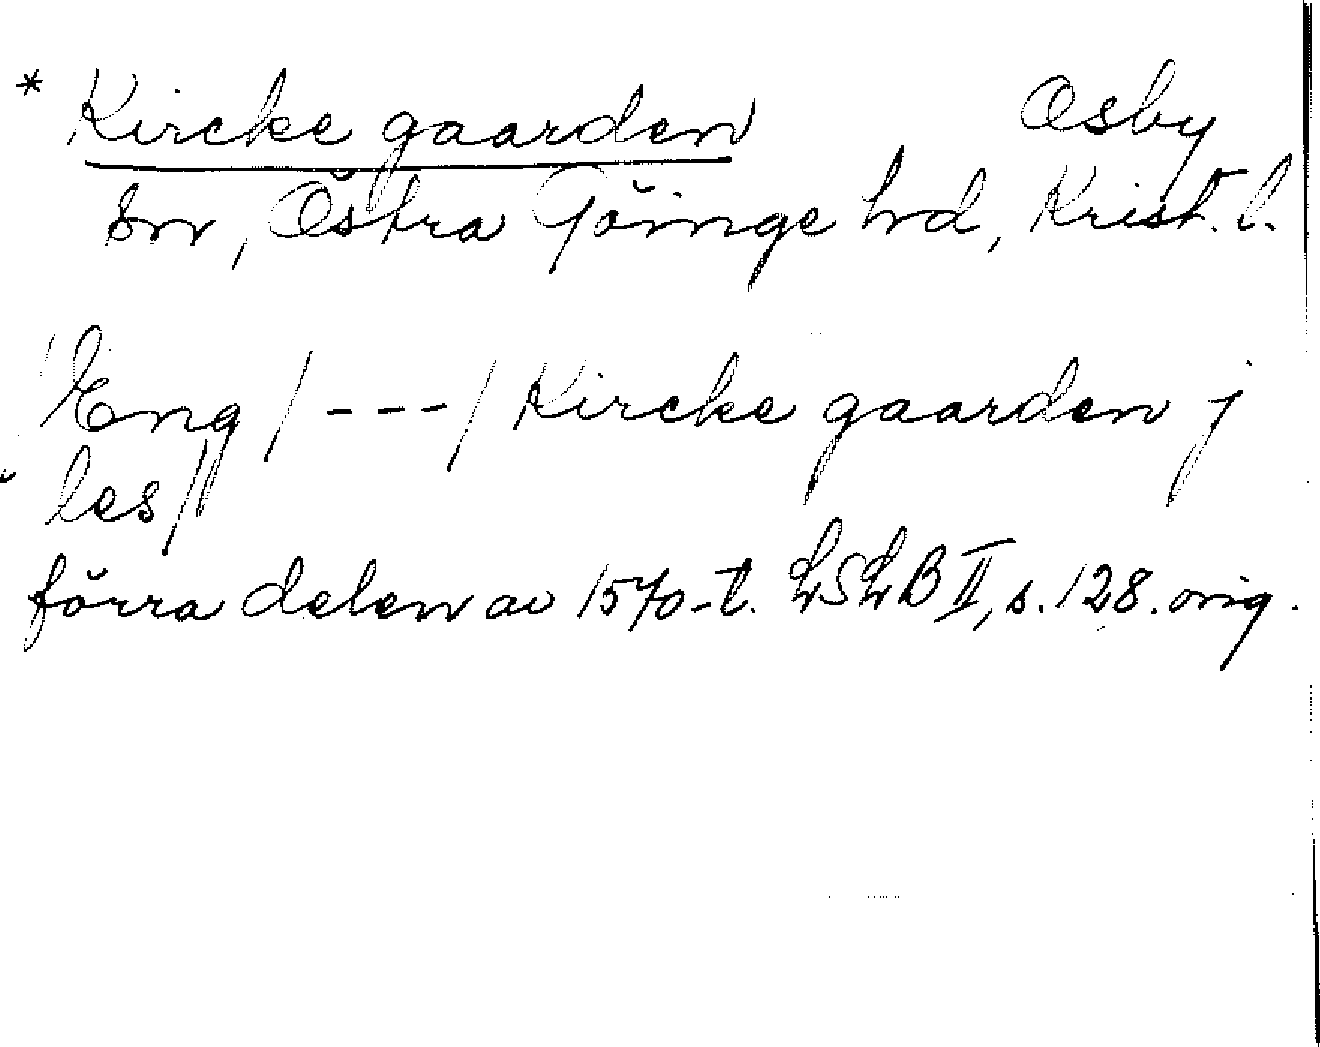 * Kircke gaarden Osby
sn, Östra Göinge hd, Krist. l.
Eng /---/ Kircke gaarden j
les//
förra delen av 1570-t. LSLB II, s. 128. orig.